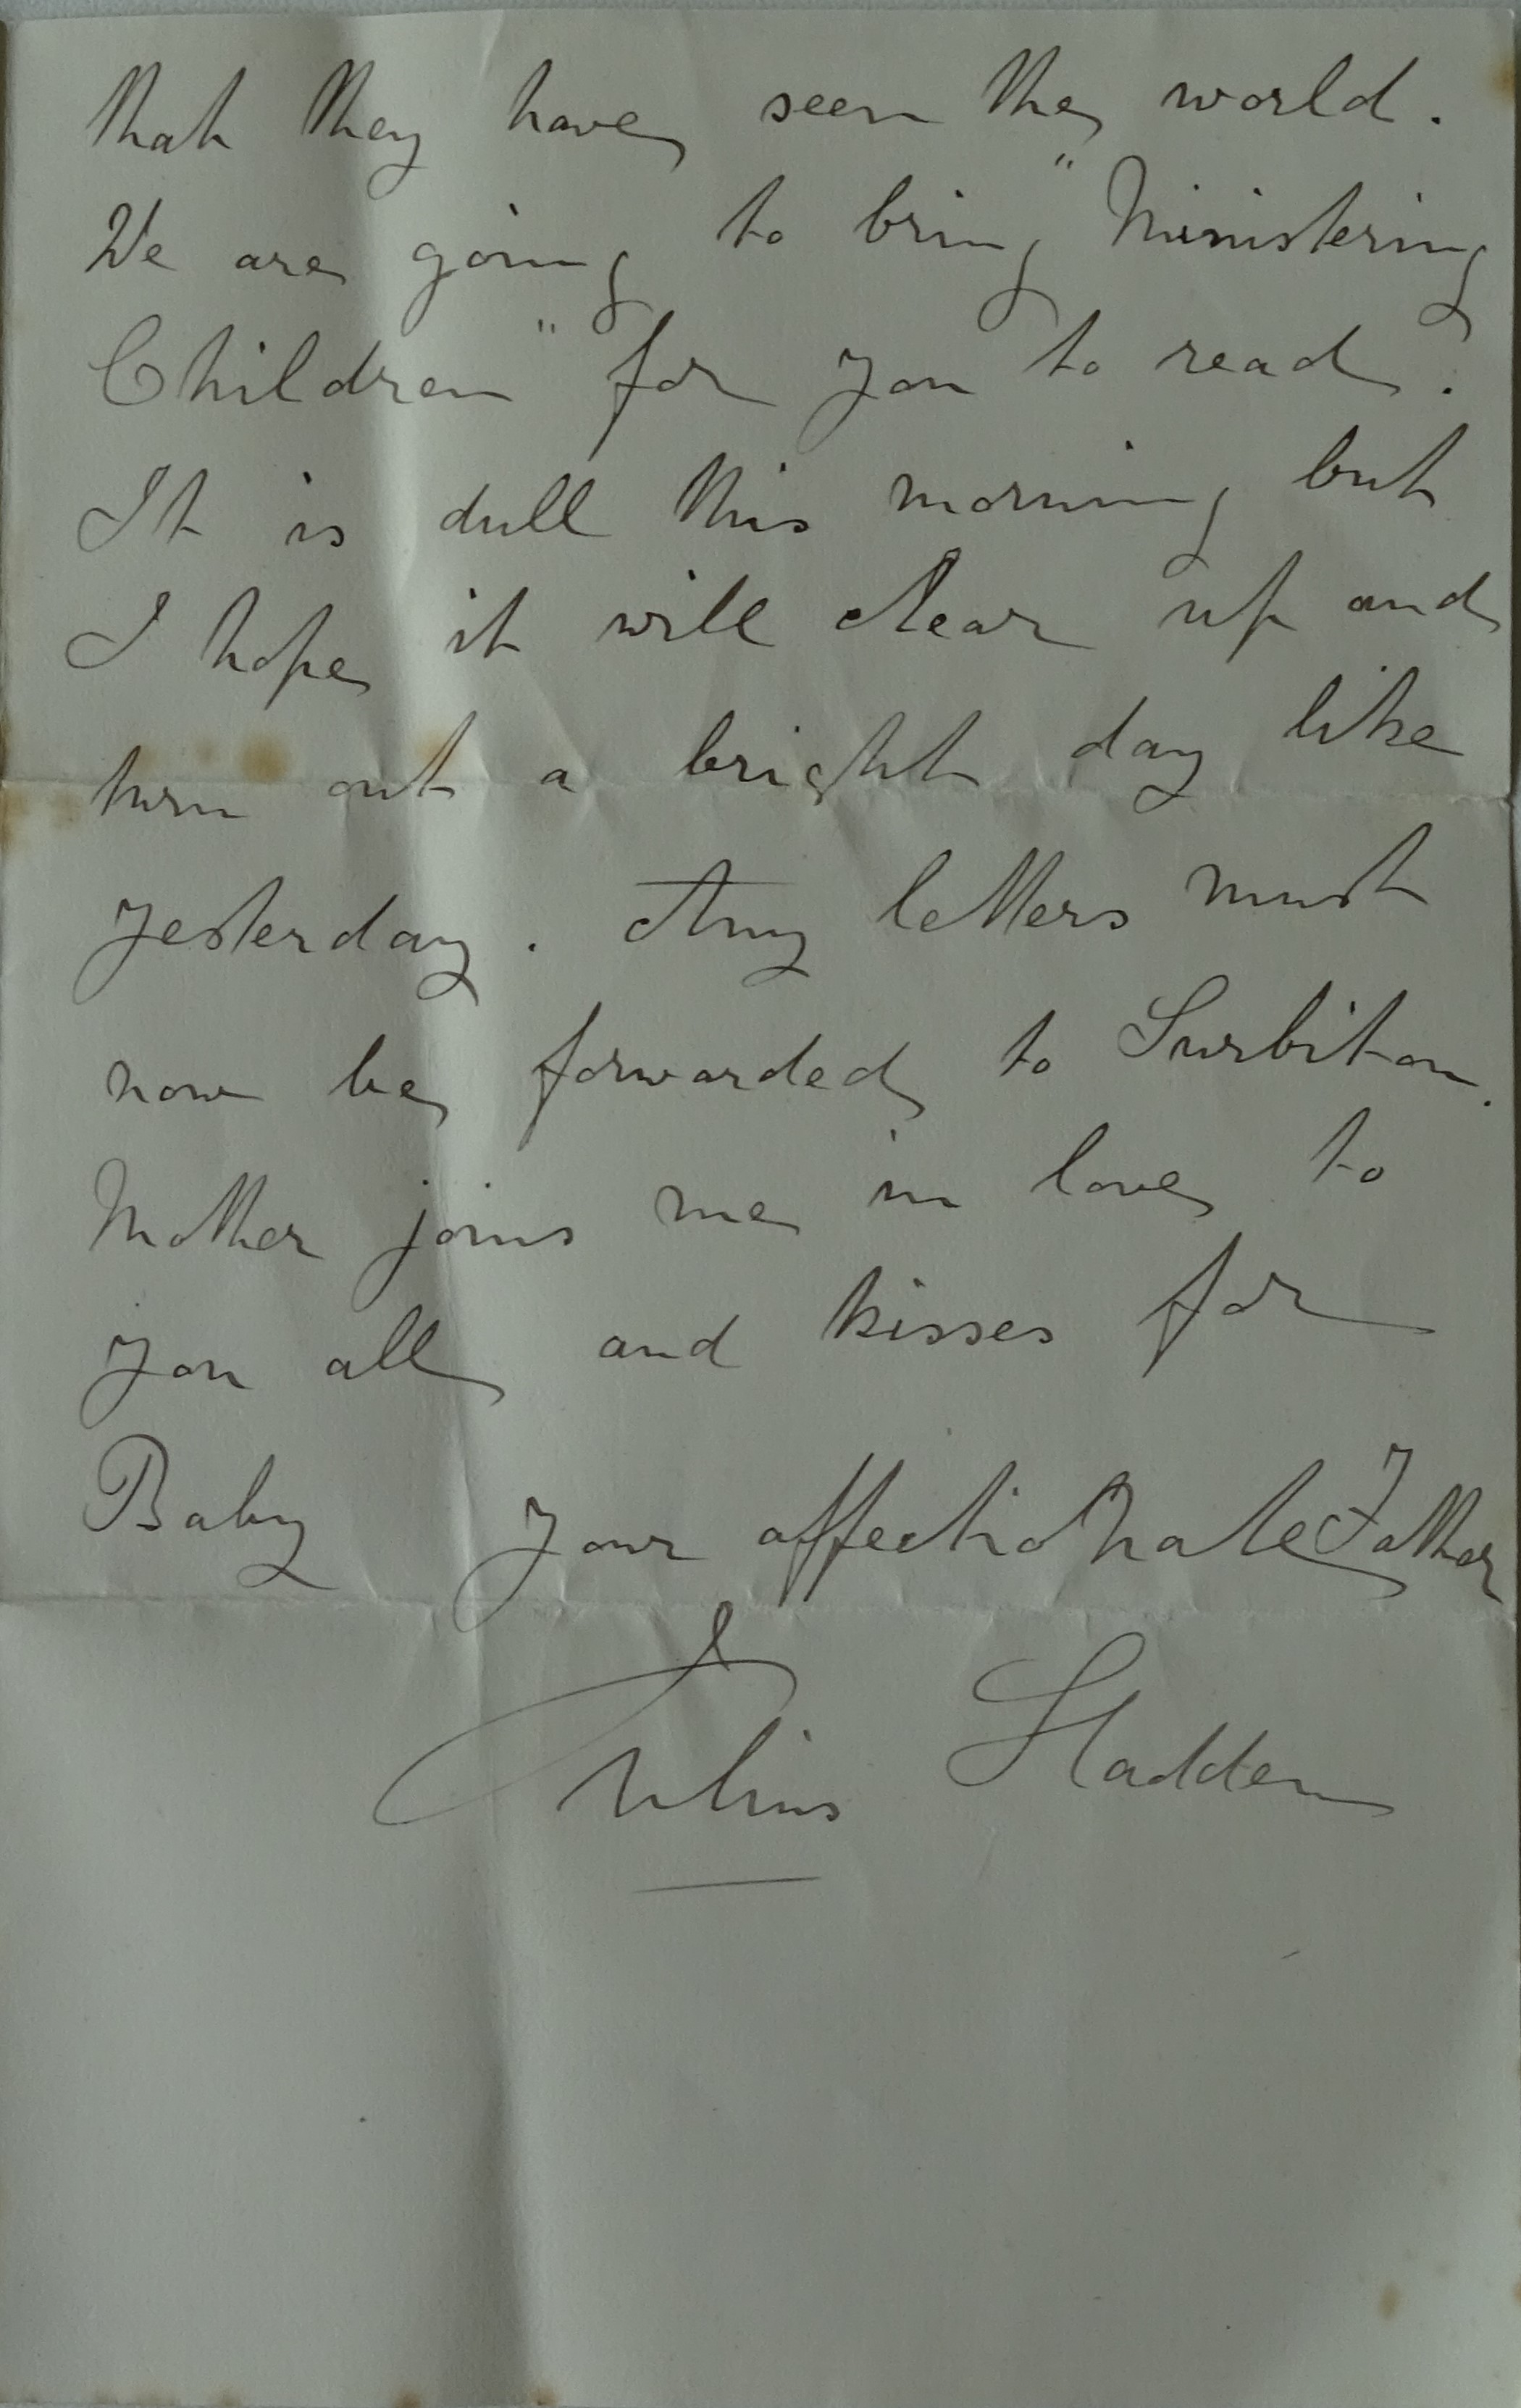 that they have seen the world.
We are going to bring "Ministering
Children" for you to read.
It is dull this morning but
I hope it will clear up and
turn out a bright day like
yesterday. Any letters must
now be forwarded to Surbiton.
Mother joins me in love to
you all and kisses for
Baby Your affectionate Father
Julius Sladden